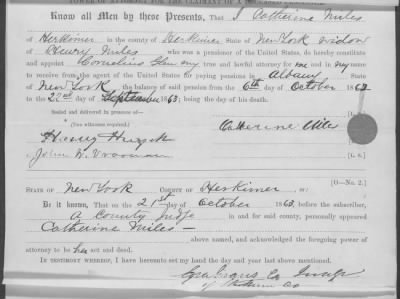 POWER OF ATTORNEY FOR THE CLAIMANT OF A
Know all Men by these Presents, That I Catherine Miles
of Herkimer in the county of Herkimer State of New York widow
of Henry Miles who was a pensioner of the United States, do hereby constitute
and appoint Cornelius my true and lawful attorney for me and in my name
to receive from the agent of the United States for paying pensions in Albany State
of New York the balance of said pension from the 6th day of October 1862
to the 22nd day of September 1863; being the day of his death.
Sealed and delivered in presence of—
(Two witnesses required.)
Catherine Miles
Henry
John W. Vrooman
[L. S.]
STATE OF New York COUNTY OF Herkimer, ss: [O—No. 2.]
Be it known, That on the 21st day of October 1863, before the subscriber,
A County Judge in and for said county, personally appeared
Catherine Miles—
above named, and acknowledged the foregoing power of
attorney to be her act and deed.
IN TESTIMONY WHEREOF, I have hereunto set my hand the day and year last above mentioned.
Ezra Graves Co Judge
of Herkimer Co